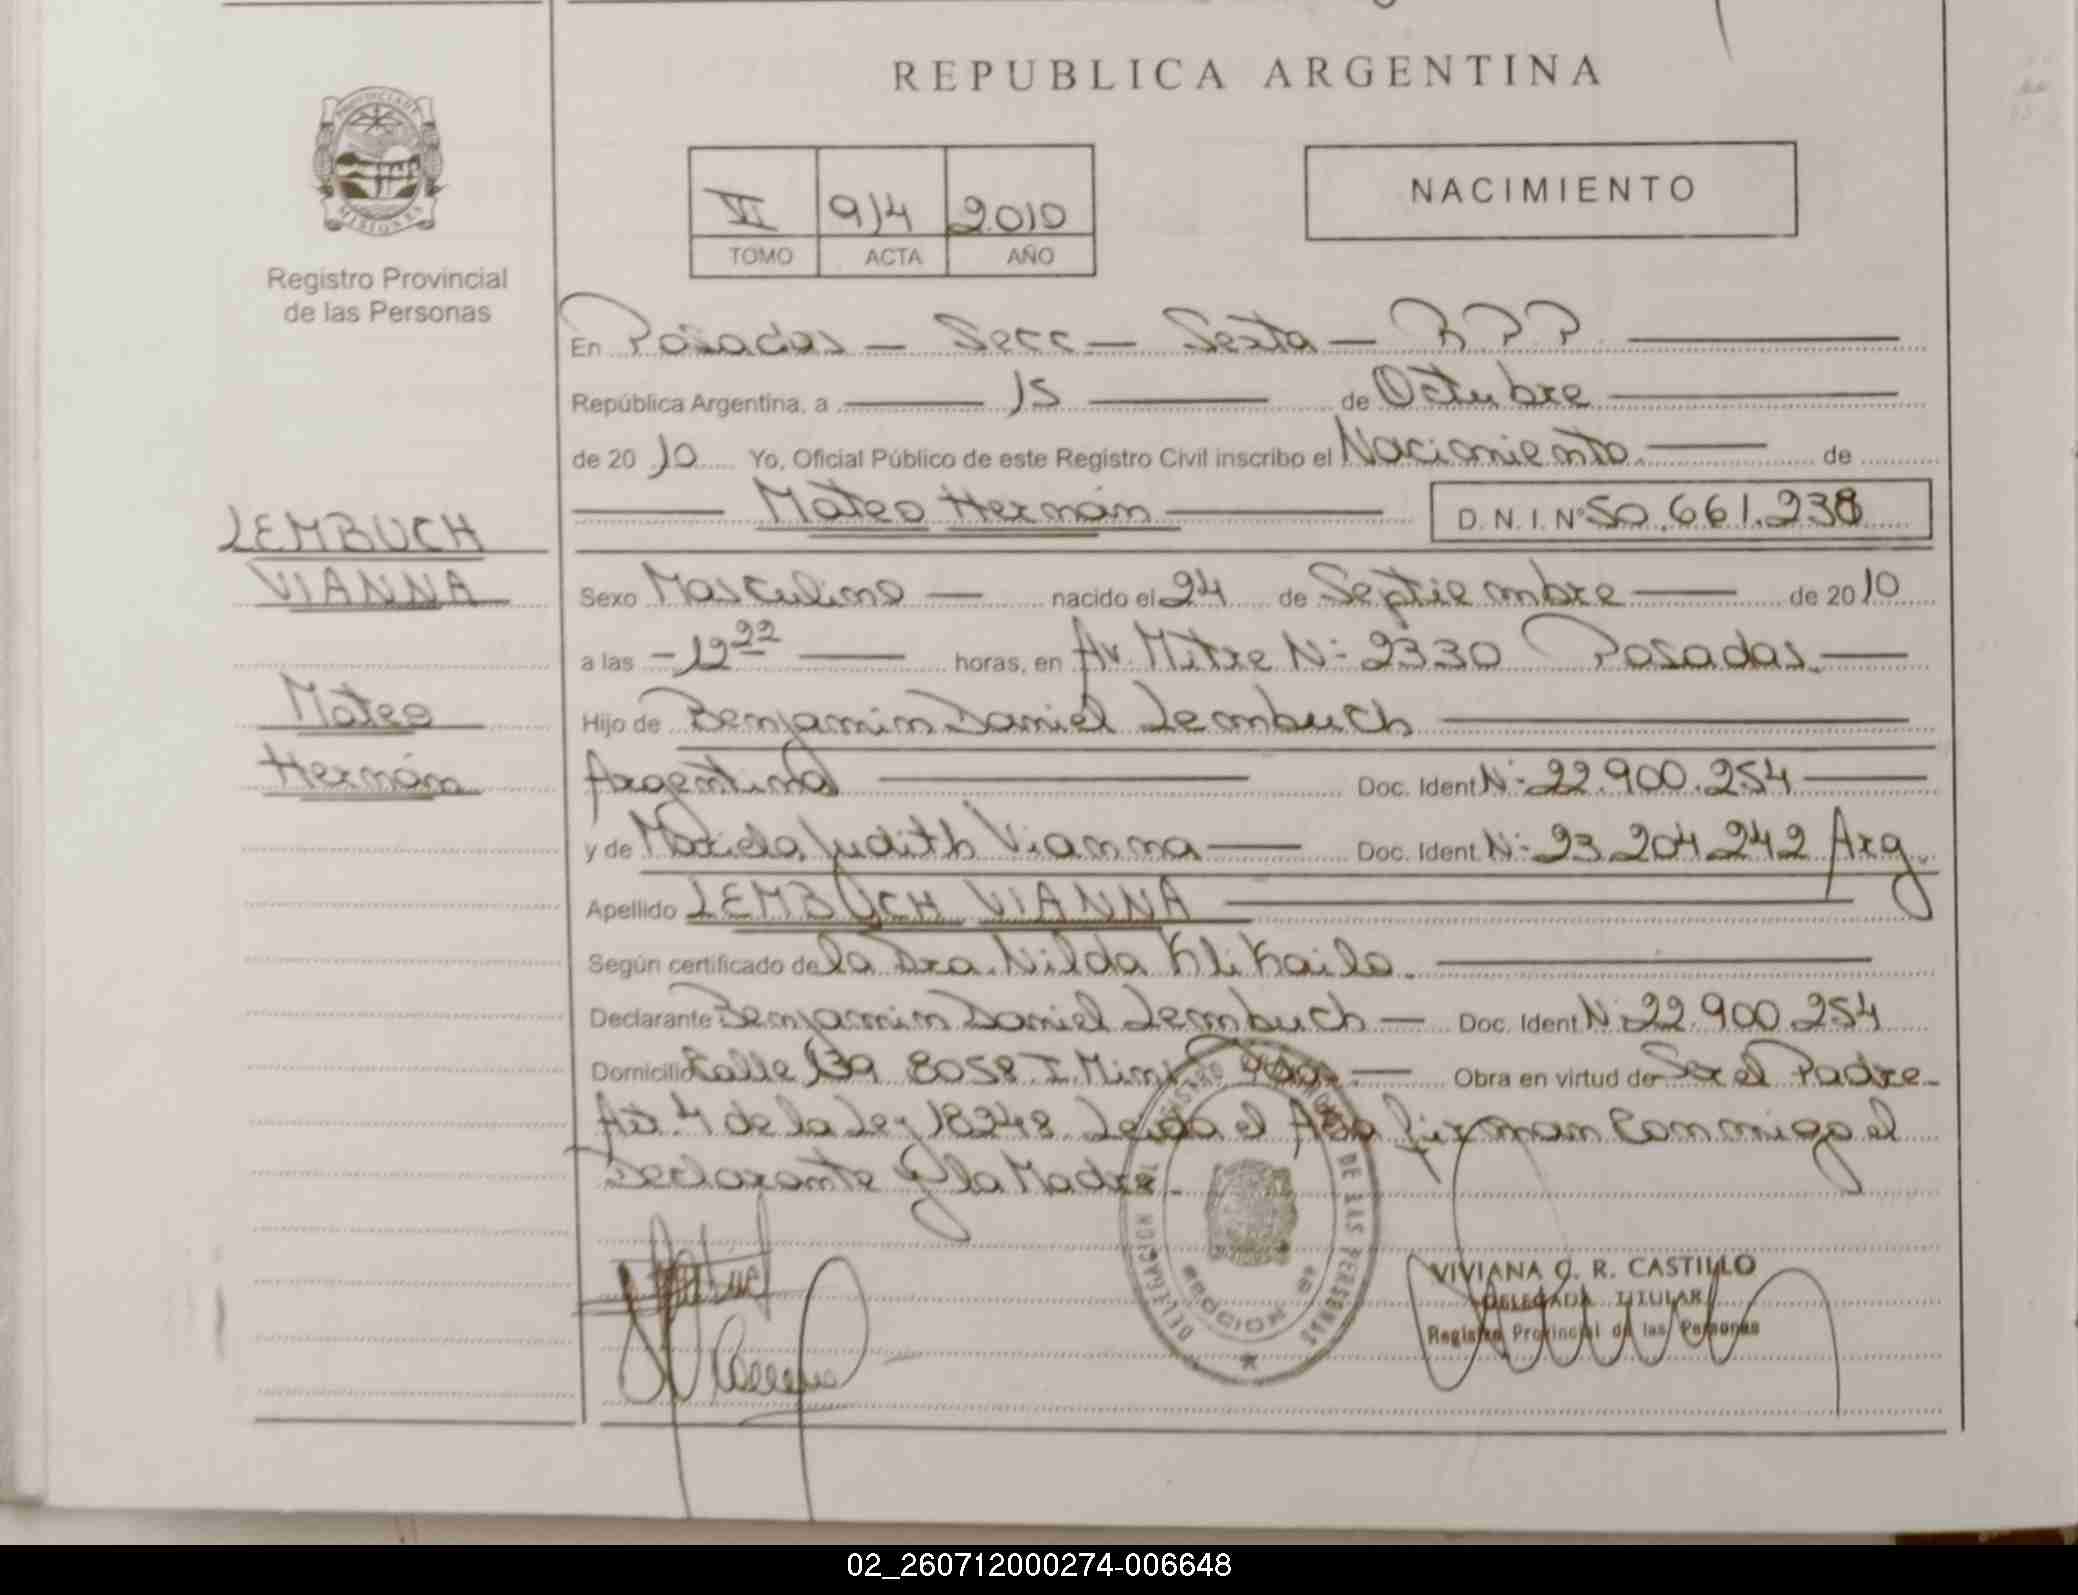 REPUBLICA ARGENTINA
PROVINCIA DE
MISIONES
Registro Provincial
de las Personas
VI 914 2010
TOMO ACTA AÑO
NACIMIENTO
En Posadas — Secc — Sexta — R P P
República Argentina, a 15 de Octubre
de 2010 Yo, Oficial Público de este Registro Civil inscribo el Nacimiento de
Mateo Hernán D. N. I. Nº 50.661.238
LEMBUCH
VIANNA
Mateo
Hernán
Sexo Masculino — nacido el 24 de Septiembre — de 2010
a las - 12 22 — horas, en Av. Mitre Nº 2330 Posadas. —
Hijo de Benjamin Daniel Lembuch
Argentina Doc. Ident Nº 22.900.254
y de Judith Vianna — Doc. Ident Nº 23.204.242 Arg.
Apellido LEMBUCH VIANNA
Según certificado de la Dra. Nilda
Declarante Benjamin Daniel Lembuch — Doc. Ident Nº 22.900.254
Domicilio Calle 139 8058 I. — Obra en virtud de Ser el Padre-
Art. 4 de la Ley 18248 Leida el Acta firman Conmigo el
Declarante y la Madre.-
DELEGACION
DE LAS PERSONAS
VIVIANA C. R. CASTILLO
DELEGADA TITULAR
Registro Provincial de las Personas
02_260712000274-006648